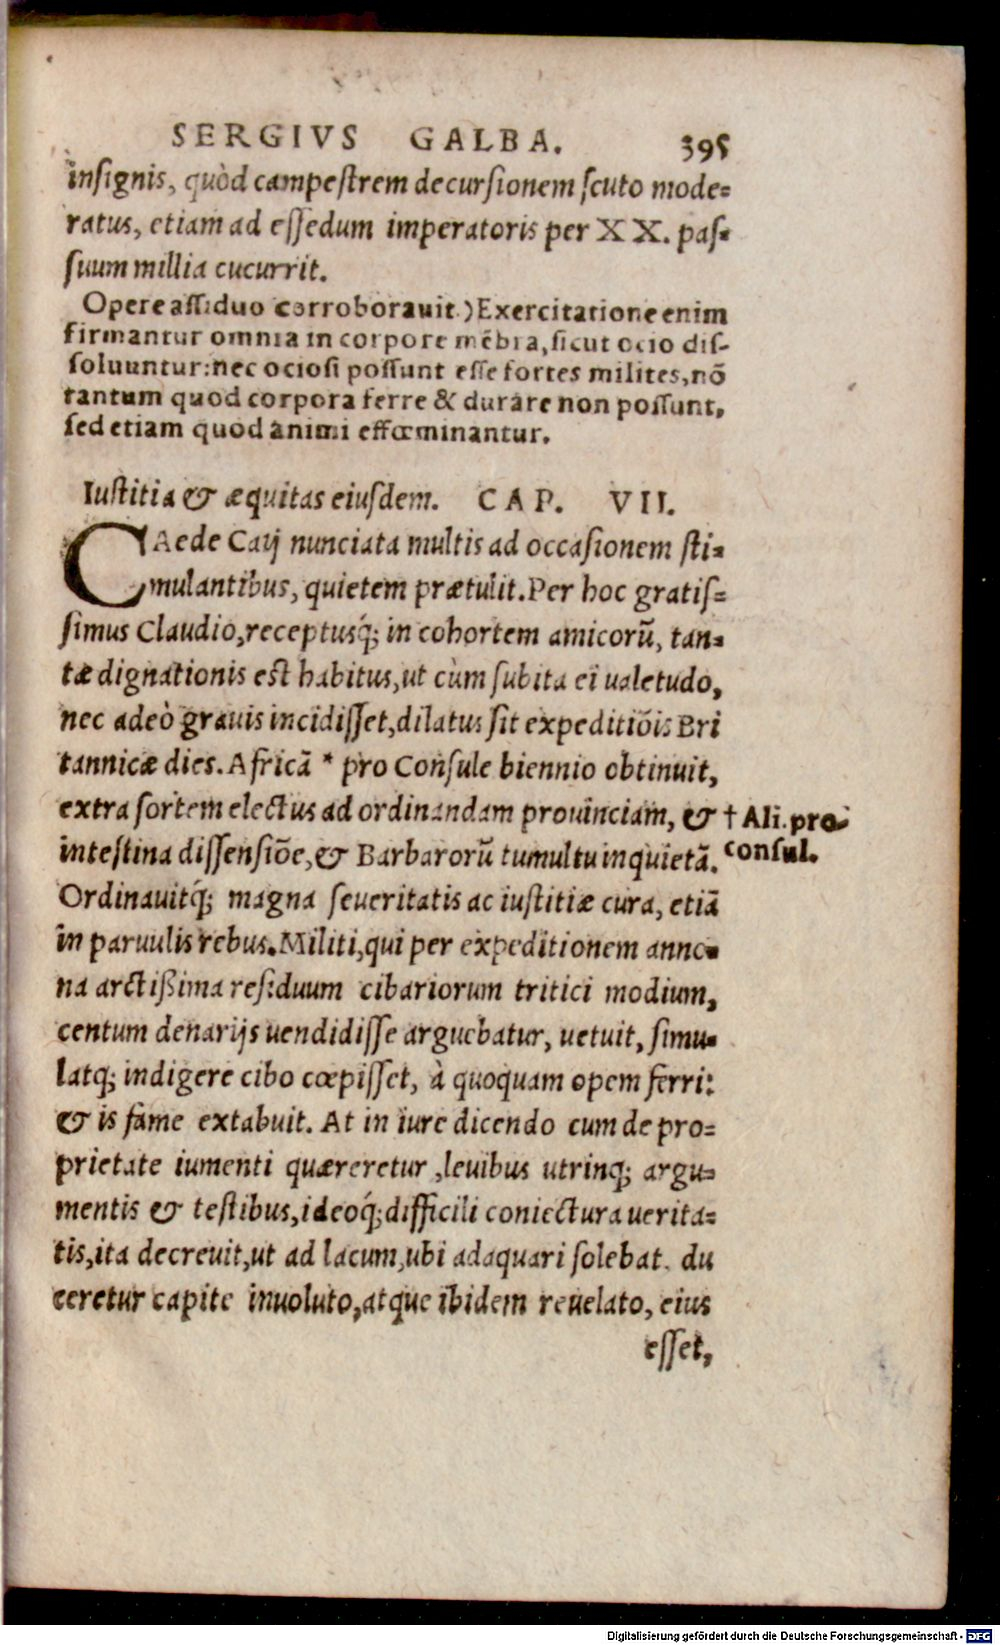 SERGIVS GALBA. 395
insignis, quòd campestrem decursionem scuto mode=
ratus, etiam ad essedum imperatoris per XX. pas=
suum millia cucurrit.
Opere assiduo corroborauit.) Exercitatione enim
firmantur omnia in corpore mēbra, sicut ocio dis-
soluuntur: nec ociosi possunt esse fortes milites, nō
tantum quod corpora ferre & durare non possunt,
sed etiam quod animi effœminantur.
Iustitia & æquitas eiusdem. CAP. VII.
CAede Caij nunciata multis ad occasionem sti=
mulantibus, quietem prætulit. Per hoc gratis=
simus Claudio, receptusq́; in cohortem amicorū, tan=
tæ dignationis est habitus, ut cùm subita ei ualetudo,
nec adeò grauis incidisset, dilatus sit expeditiōis Bri
tannicæ dies. Africā * pro Consule biennio obtinuit,
extra sortem electus ad ordinandam prouinciam, &
† Ali. pro-
intestina dissensiōe, & Barbarorū tumultu inquietā.
consul.
Ordinauitq́; magna seueritatis ac iustitiæ cura, etiā
in paruulis rebus. Militi, qui per expeditionem anno=
na arctißima residuum cibariorum tritici modium,
centum denarijs uendidisse arguebatur, uetuit, simu=
latq; indigere cibo cœpisset, à quoquam opem ferri:
& is fame extabuit. At in iure dicendo cum de pro=
prietate iumenti quæreretur, leuibus utrinq; argu=
mentis & testibus, ideoq́; difficili coniectura uerita=
tis, ita decreuit, ut ad lacum, ubi adaquari solebat, du
ceretur capite inuoluto, atque ibidem reuelato, eius
esset,
Digitalisierung gefördert durch die Deutsche Forschungsgemeinschaft - DFG